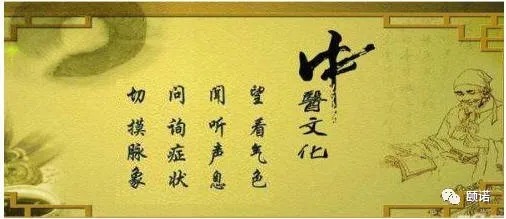 中醫文化
望看气色
闻听声息
问询症状
切摸脉象
颐诺